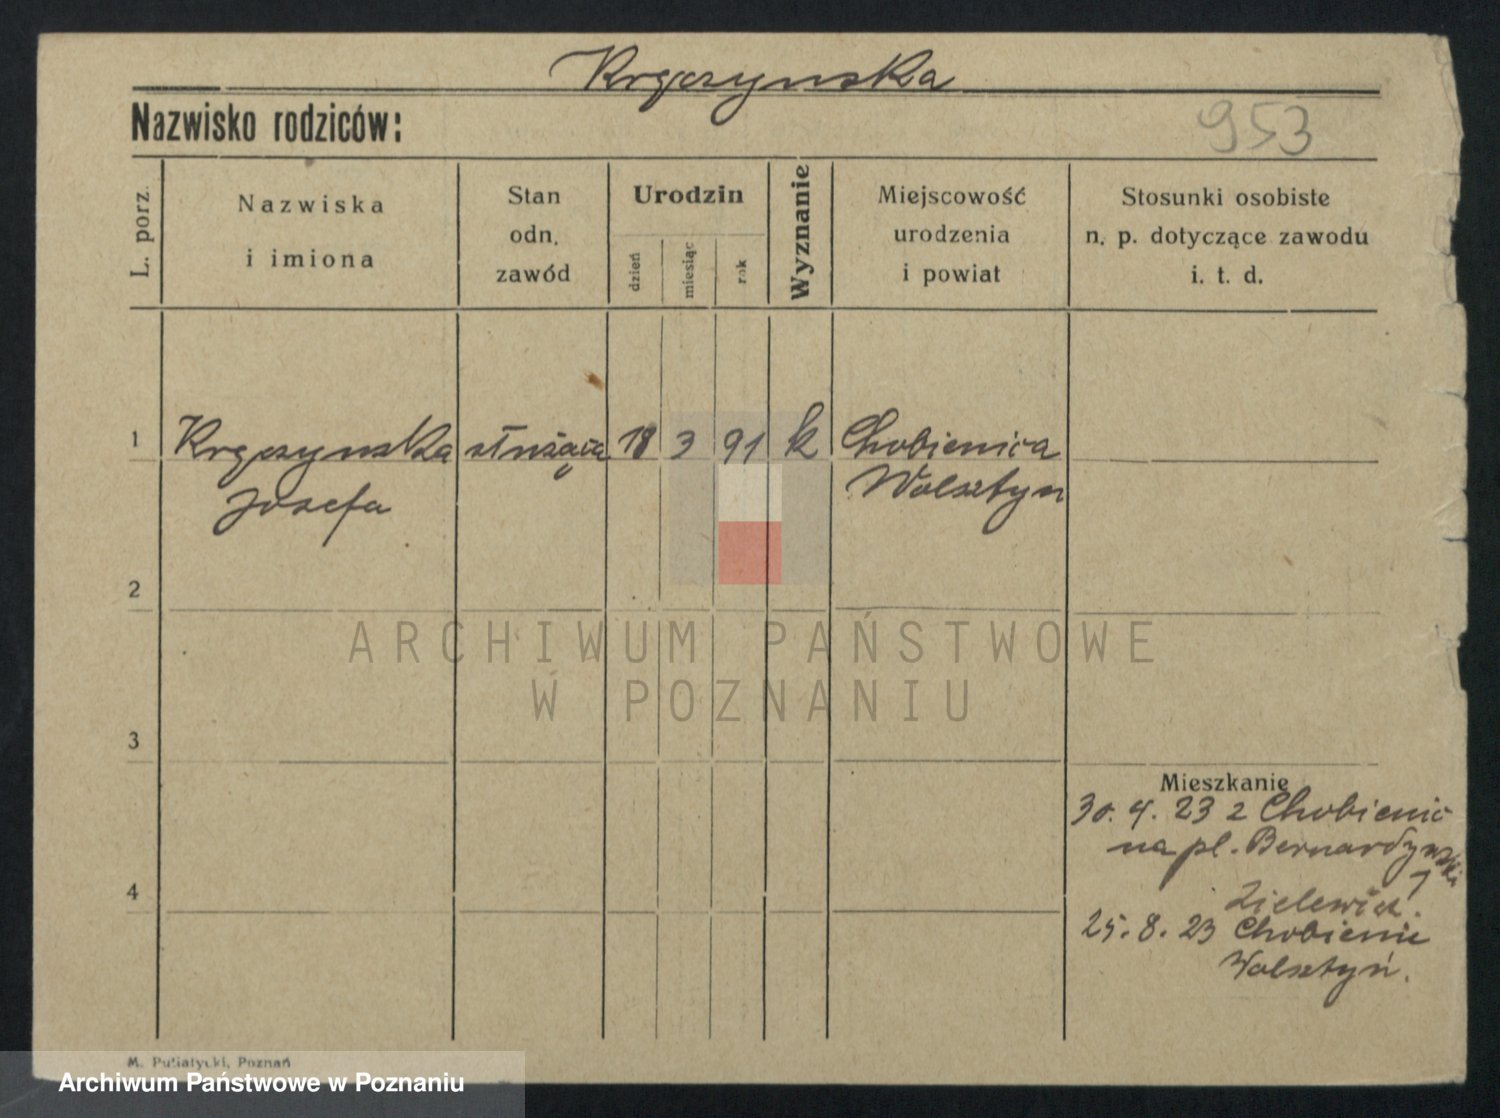 Krgczynska
953
Nazwisko rodziców:
L. porz.
Nazwiska
i imiona
Stan
odn.
zawód
Urodzin
dzień
miesiąc
rok
Wyznanie
Miejscowość
urodzenia
i powiat
Stosunki osobiste
n. p. dotyczące zawodu
i. t. d.
1 Krgczynska służąca 18 3 91 k Chobienica
Josefa Wolsztyn
2
ARCHIWUM PAŃSTWOWE
W POZNANIU
3
Mieszkanie
30. 4. 23 z Chobienic
na pl. Bernardyński
4
7
Zielewicz.
25. 8. 23 Chobienic
Wolsztyń.
M. Putiatycki, Poznań
Archiwum Państwowe w Poznaniu